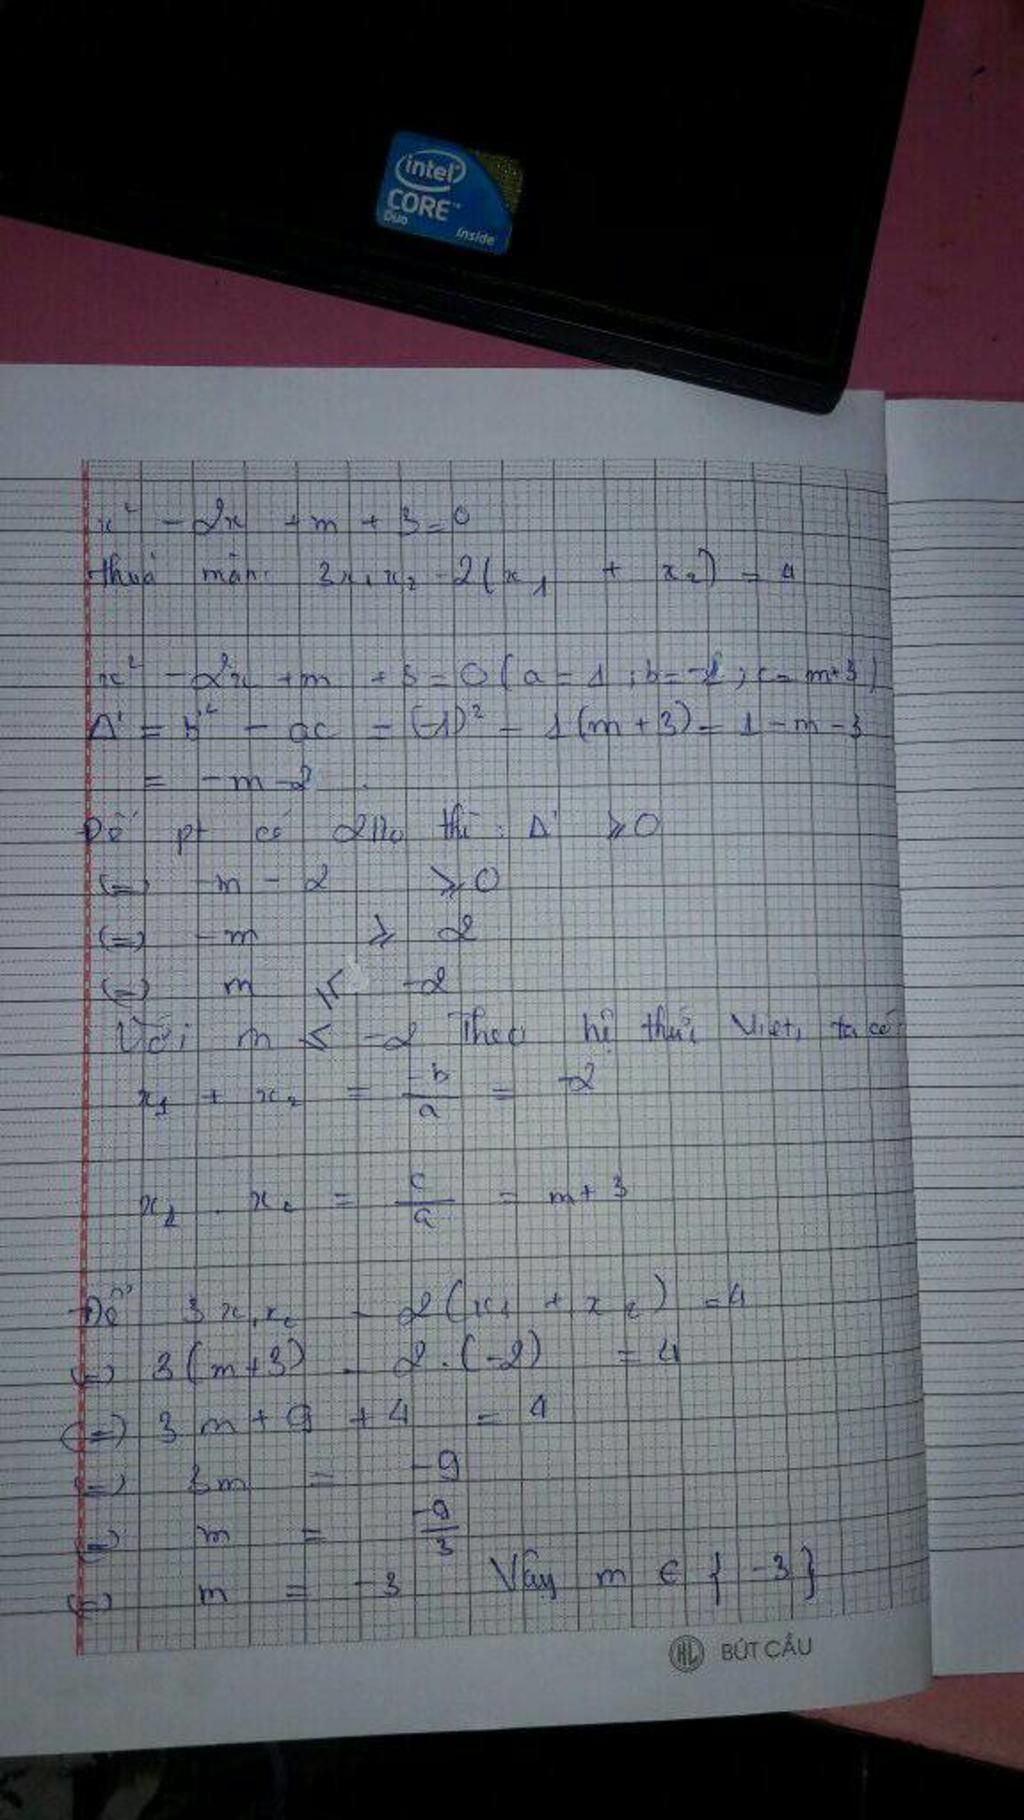 intel
CORE™
Duo
inside
x² - 2x + m + 3 = 0
thoả mãn: 3x₁x₂ - 2(x₁ + x₂) = 4
x² - 2x + m + 3 = 0 (a = 1; b = -2; c = m+3)
Δ' = b'² - ac = (-1)² - 1(m + 3) = 1 - m - 3
= -m - 2.
Để pt có 2 no thì: Δ' ≥ 0
(=) -m - 2 ≥ 0
(=) -m ≥ 2
(=) m ≤ -2
Với m ≤ -2 Theo hệ thức Viet, ta có
x₁ + x₂ = -b/a = -2
x₁ . x₂ = c/a = m + 3
Để 3x₁x₂ - 2(x₁ + x₂) = 4
(=) 3(m+3) - 2.(-2) = 4
(=) 3m + 9 + 4 = 4
(=) 3m = -9
(=) m = -9/3
(=) m = -3 Vậy m ∈ {-3}
HL BÚT CẦU